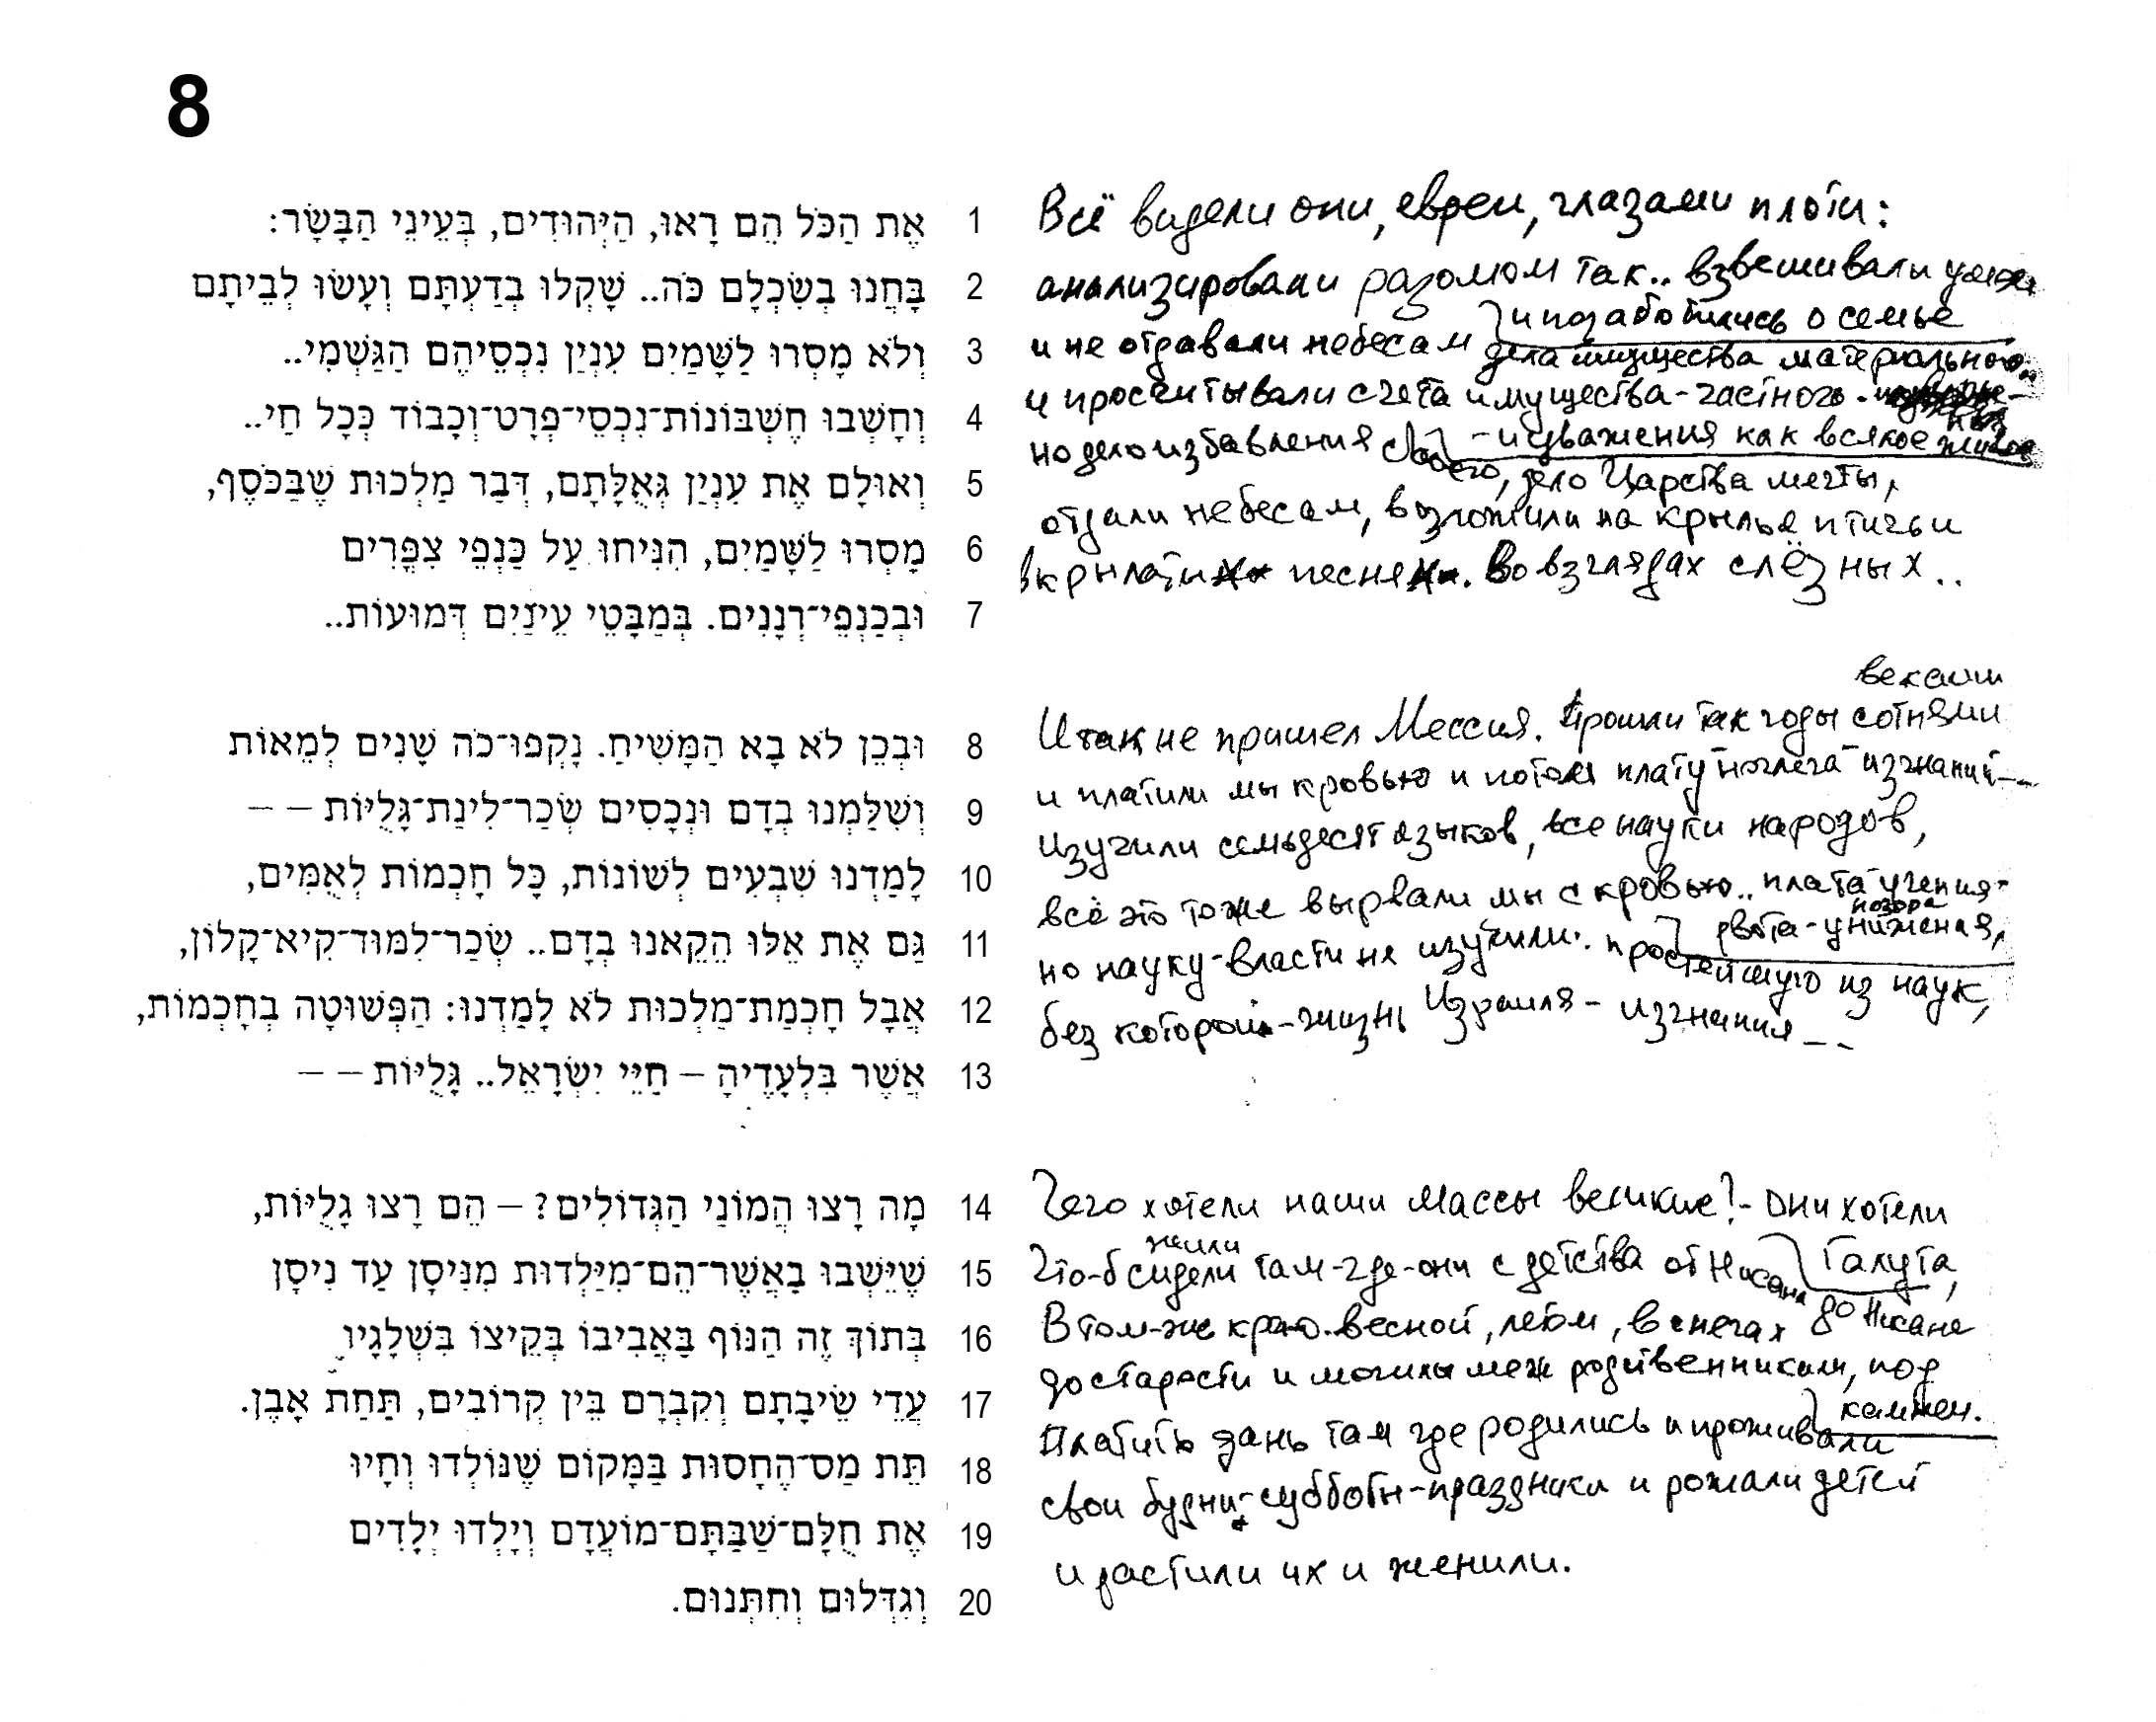 8
אֶת הַכֹּל הֵם רָאוּ, הַיְּהוּדִים, בְּעֵינֵי הַבָּשָׂר:
1
Всё видели они, евреи, глазами плоти:
בָּחֲנוּ בְשִׂכְלָם כֹּה.. שָׁקְלוּ בְדַעְתָּם וְעָשׂוּ לְבֵיתָם
2
анализировали разумом так.. взвешивали умом
} и позаботились о семье
וְלֹא מָסְרוּ לַשָּׁמַיִם עִנְיַן נִכְסֵיהֶם הַגַּשְׁמִי..
3
и не отдавали небесам дела имущества материального..
וְחָשְׁבוּ חֶשְׁבּוֹנוֹת־נִכְסֵי־פְּרָט־וְכָבוֹד כְּכָל חַי..
4
и просчитывали счета имущества-частного-
} -и уважения как всякое живое
וְאוּלָם אֶת עִנְיַן גְּאֻלָּתָם, דְּבַר מַלְכוּת שֶׁבַּכֹּסֶף,
5
но дело избавления своего, дело Царства мечты,
מָסְרוּ לַשָּׁמַיִם, הִנִּיחוּ עַל כַּנְפֵי צִפֳּרִים
6
отдали небесам, возложили на крылья птичьи
וּבְכַנְפֵי־רְנָנִים. בְּמַבָּטֵי עֵינַיִם דְּמוּעוֹת..
7
песне. Во взглядах слёзных..
веками
וּבְכֵן לֹא בָא הַמָּשִׁיחַ. נָקְפוּ־כֹה שָׁנִים לְמֵאוֹת
8
И так не пришел Мессия. Прошли так годы сотнями
וְשִׁלַּמְנוּ בְדָם וּנְכָסִים שְׂכַר־לִינַת־גָּלֻיּוֹת – –
9
и платили мы кровью и потом плату-ночлега-изгнаний--
לָמַדְנוּ שִׁבְעִים לְשׁוֹנוֹת, כָּל חָכְמוֹת לְאֻמִּים,
10
изучили семьдесят языков, все науки народов,
גַּם אֶת אֵלּוּ הֲקֵאנוּ בְדָם.. שְׂכַר־לִמּוּד־קִיא־קָלוֹן,
11
всё это тоже вырвали мы с кровью.. плата-учения-
позора
} рвота-унижения,
אֲבָל חָכְמַת־מַלְכוּת לֹא לָמַדְנוּ: הַפְּשׁוּטָה בְחָכְמוֹת,
12
но науку-власти не изучили: простейшую из наук,
אֲשֶׁר בִּלְעָדֶיהָ – חַיֵּי יִשְׂרָאֵל.. גָּלֻיּוֹת – –
13
без которой-жизнь Израиля - изгнания --
מָה רָצוּ הֲמוֹנַי הַגְּדוֹלִים? – הֵם רָצוּ גָלֻיּוֹת,
14
Чего хотели наши массы великие?- они хотели
} Галута,
жили
שֶׁיֵּשְׁבוּ בַאֲשֶׁר־הֵם־מִיַּלְדוּת מִנִּיסָן עַד נִיסָן
15
что-б сидели там-где-они с детства от Нисана до Нисана
בְּתוֹךְ זֶה הַנּוֹף בַּאֲבִיבוֹ בְּקֵיצוֹ בִּשְׁלָגָיו
16
В том-же краю.весной, летом, в снегах
עֲדֵי שֵׂיבָתָם וְקִבְרָם בֵּין קְרוֹבִים, תַּחַת אָבֶן.
17
до старости и могилы меж родственниками, под
} камнем.
תֵּת מַס־הֶחָסוּת בַּמָּקוֹם שֶׁנּוֹלְדוּ וְחָיוּ
18
Платить дань там где родились и проживали
אֶת חֻלָּם־שַׁבַּתָּם־מוֹעֲדָם וְיָלְדוּ יְלָדִים
19
свои будни-субботы-праздники и рожали детей
וְגִדְּלוּם וְחִתְּנוּם.
20
и растили их и женили.